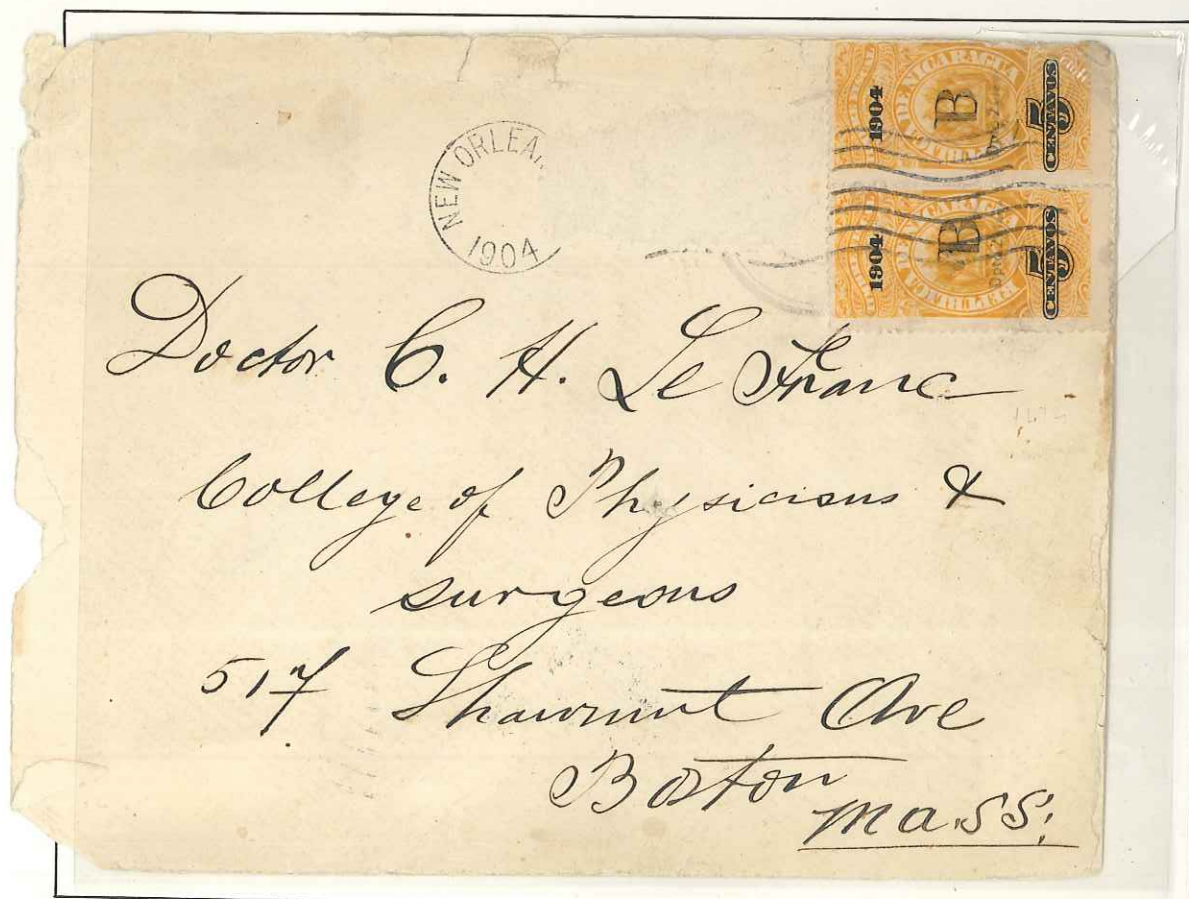 NEW ORLEA
1904
1904
DE NICARAGUA
B
5
CENTAVOS
1904
B
5
CENTAVOS
Doctor C. H. Le Franc
College of Physicians &
surgeons
517 Shawmut Ave
Boston
Mass: